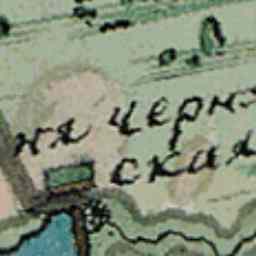 ня черня
ская